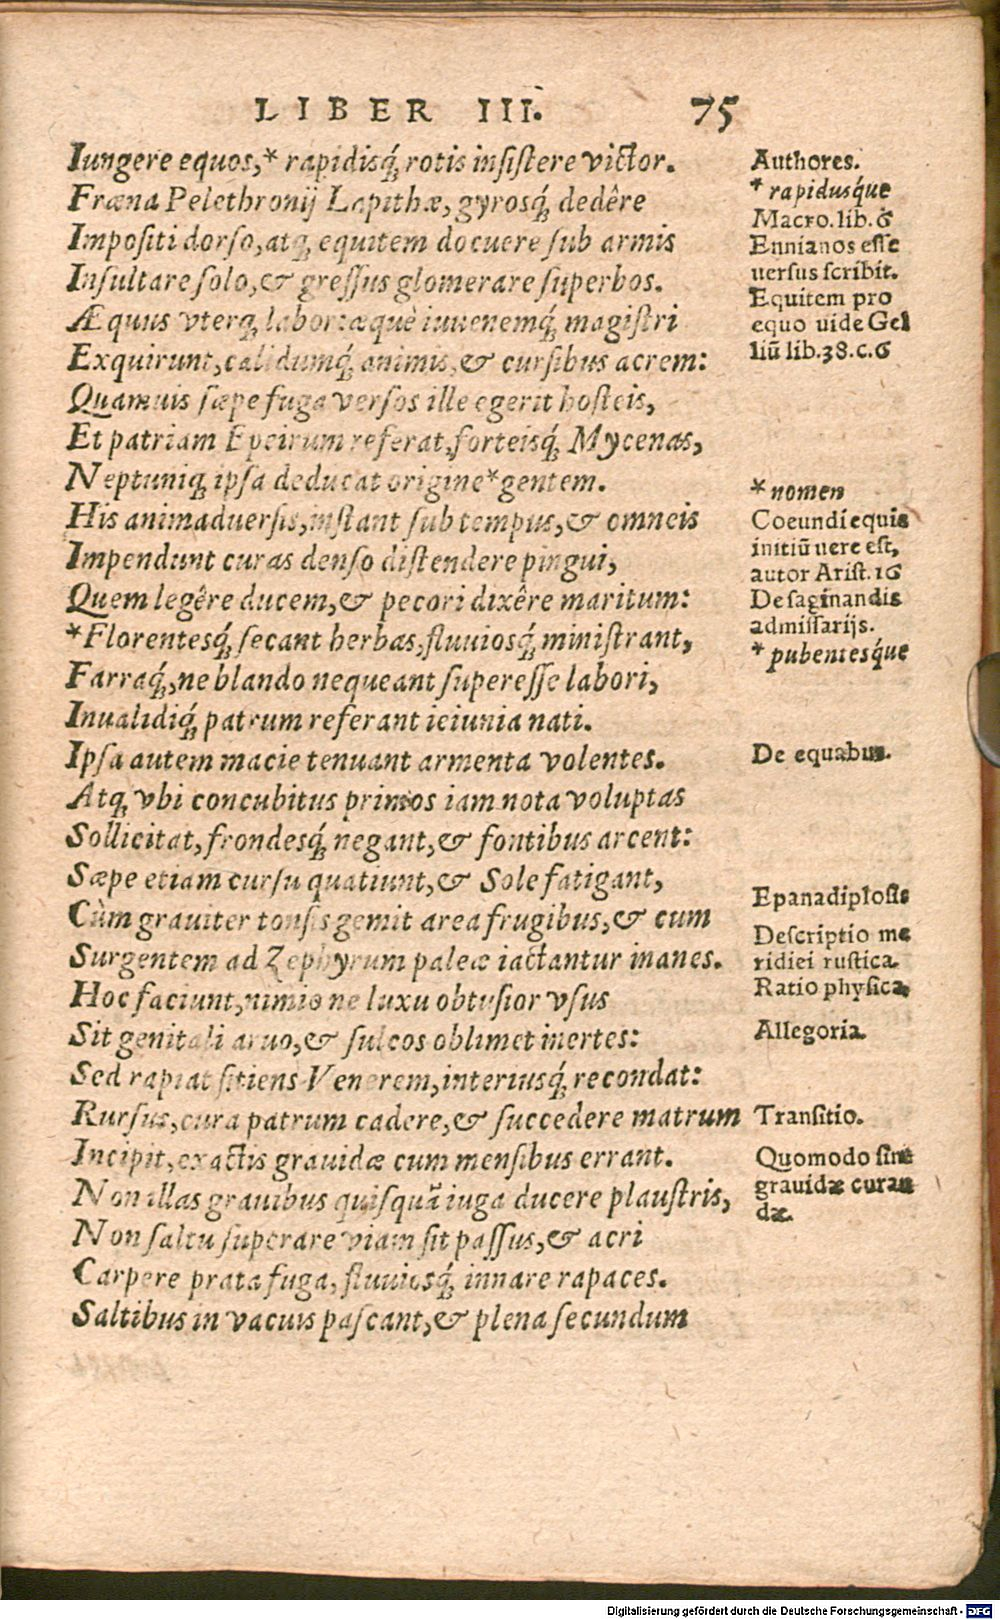 LIBER III. 75
Iungere equos,* rapidisq́; rotis insistere victor.
Fræna Pelethronij Lapithæ, gyrosq́; dedêre
Impositi dorso, atq; equitem docuere sub armis
Insultare solo, & gressus glomerare superbos.
Æquus vterq; labor: æquè iuuenemq́; magistri
Exquirunt, calidumq́; animis, & cursibus acrem:
Quamuis sæpe fuga versos ille egerit hosteis,
Et patriam Epeirum referat, forteisq́; Mycenas,
Neptuniq; ipsa deducat origine*gentem.
His animaduersis, instant sub tempus, & omneis
Impendunt curas denso distendere pingui,
Quem legêre ducem, & pecori dixêre maritum:
*Florentesq́; secant herbas, fluuiosq́; ministrant,
Farraq́;, ne blando nequeant superesse labori,
Inualidiq́; patrum referant ieiunia nati.
Ipsa autem macie tenuant armenta volentes.
Atq; vbi concubitus primos iam nota voluptas
Sollicitat, frondesq́; negant, & fontibus arcent:
Sæpe etiam cursu quatiunt, & Sole fatigant,
Cùm grauiter tonsis gemit area frugibus, & cum
Surgentem ad Zephyrum paleæ iactantur inanes.
Hoc faciunt, nimio ne luxu obtusior vsus
Sit genitali aruo, & sulcos oblimet inertes:
Sed rapiat sitiens Venerem, interiusq́; recondat:
Rursus, cura patrum cadere, & succedere matrum
Incipit, exactis grauidæ cum mensibus errant.
Non illas grauibus quisquā iuga ducere plaustris,
Non saltu superare viam sit passus, & acri
Carpere prata fuga, fluuiosq́; innare rapaces.
Saltibus in vacuis pascant, & plena secundum
Authores.
* rapidusq́ue
Macro. lib. 6
Ennianos esse
uersus scribit.
Equitem pro
equo uide Gel
liū lib.38.c.6
* nomen
Coeundi equis
initiū uere est,
autor Arist. 16
De saginandis
admissarijs.
* pubentesq́ue
De equabus.
Epanadiplosis
Descriptio me
ridiei rustica.
Ratio physica.
Allegoria.
Transitio.
Quomodo sint
grauidæ curan
dæ.
Digitalisierung gefördert durch die Deutsche Forschungsgemeinschaft - DFG